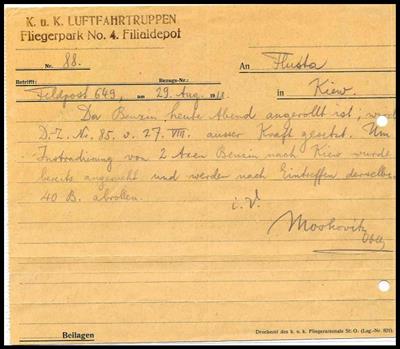 K. u. K. LUFTFAHRTRUPPEN
Fliegerpark No. 4. Filialdepot
Nr. 88.
An Flusta
Betrifft: Bezugs-Nr.:
in Kiew.
Feldpost 649, am 29. Aug. 1918.
Da Benzin heute Abend angerollt ist; wird
D.-Z. Nr. 85. v. 27. VIII. ausser Kraft gesetzt. Um
Instradierung von 2 Axen Benzin nach Kiew wurde
bereits angesucht und werden nach Eintreffen derselben
40 B. abrollen.
i. V.
Moskovitz
Beilagen
Druckerei des k. u. k. Fliegerarsenals St. O. (Lag.-Nr. 821).